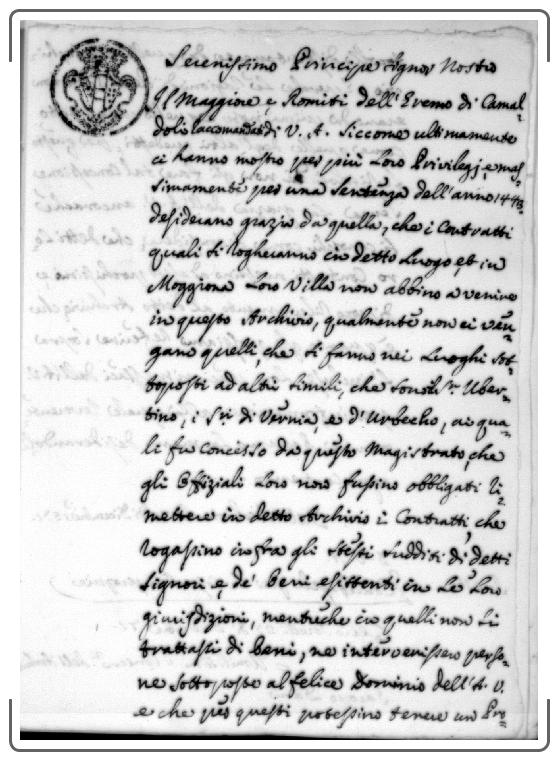 Serenissimo Principe Signor Nostro
Il Maggiore e Romiti dell'Eremo di Camal=
doli raccomandati di V. A. Siccome ultimamente
ci hanno mostro per più Loro Privilegj, e mas=
simamente per una Sentenza dell'anno 1443
desiderano grazia da quella, che i Contratti
quali si rogheranno in detto Luogo, et in
Moggiona Loro Villa non abbino a venire
in questo Archivio, qualmente non ci ven=
gano quelli, che si fanno nei Luoghi sot=
toposti ad altri simili, che sono il Sr. Uber=
tino, i Sri. di Vernia, e d'Urbecho, ai qua=
li fu concesso da questo Magistrato, che
gli Offiziali Loro non fussino obbligati ri=
mettere in detto Archivio i Contratti, che
rogassino infra gli stessi sudditi di detti
Signori e, de' beni esistenti in Le Loro
giurisdizioni, mentreche in quelli non si
trattassi di beni, ne intervenissero perso=
ne sottoposte al felice Dominio dell'A. V.
e che per questi potessino tenere un Pro=